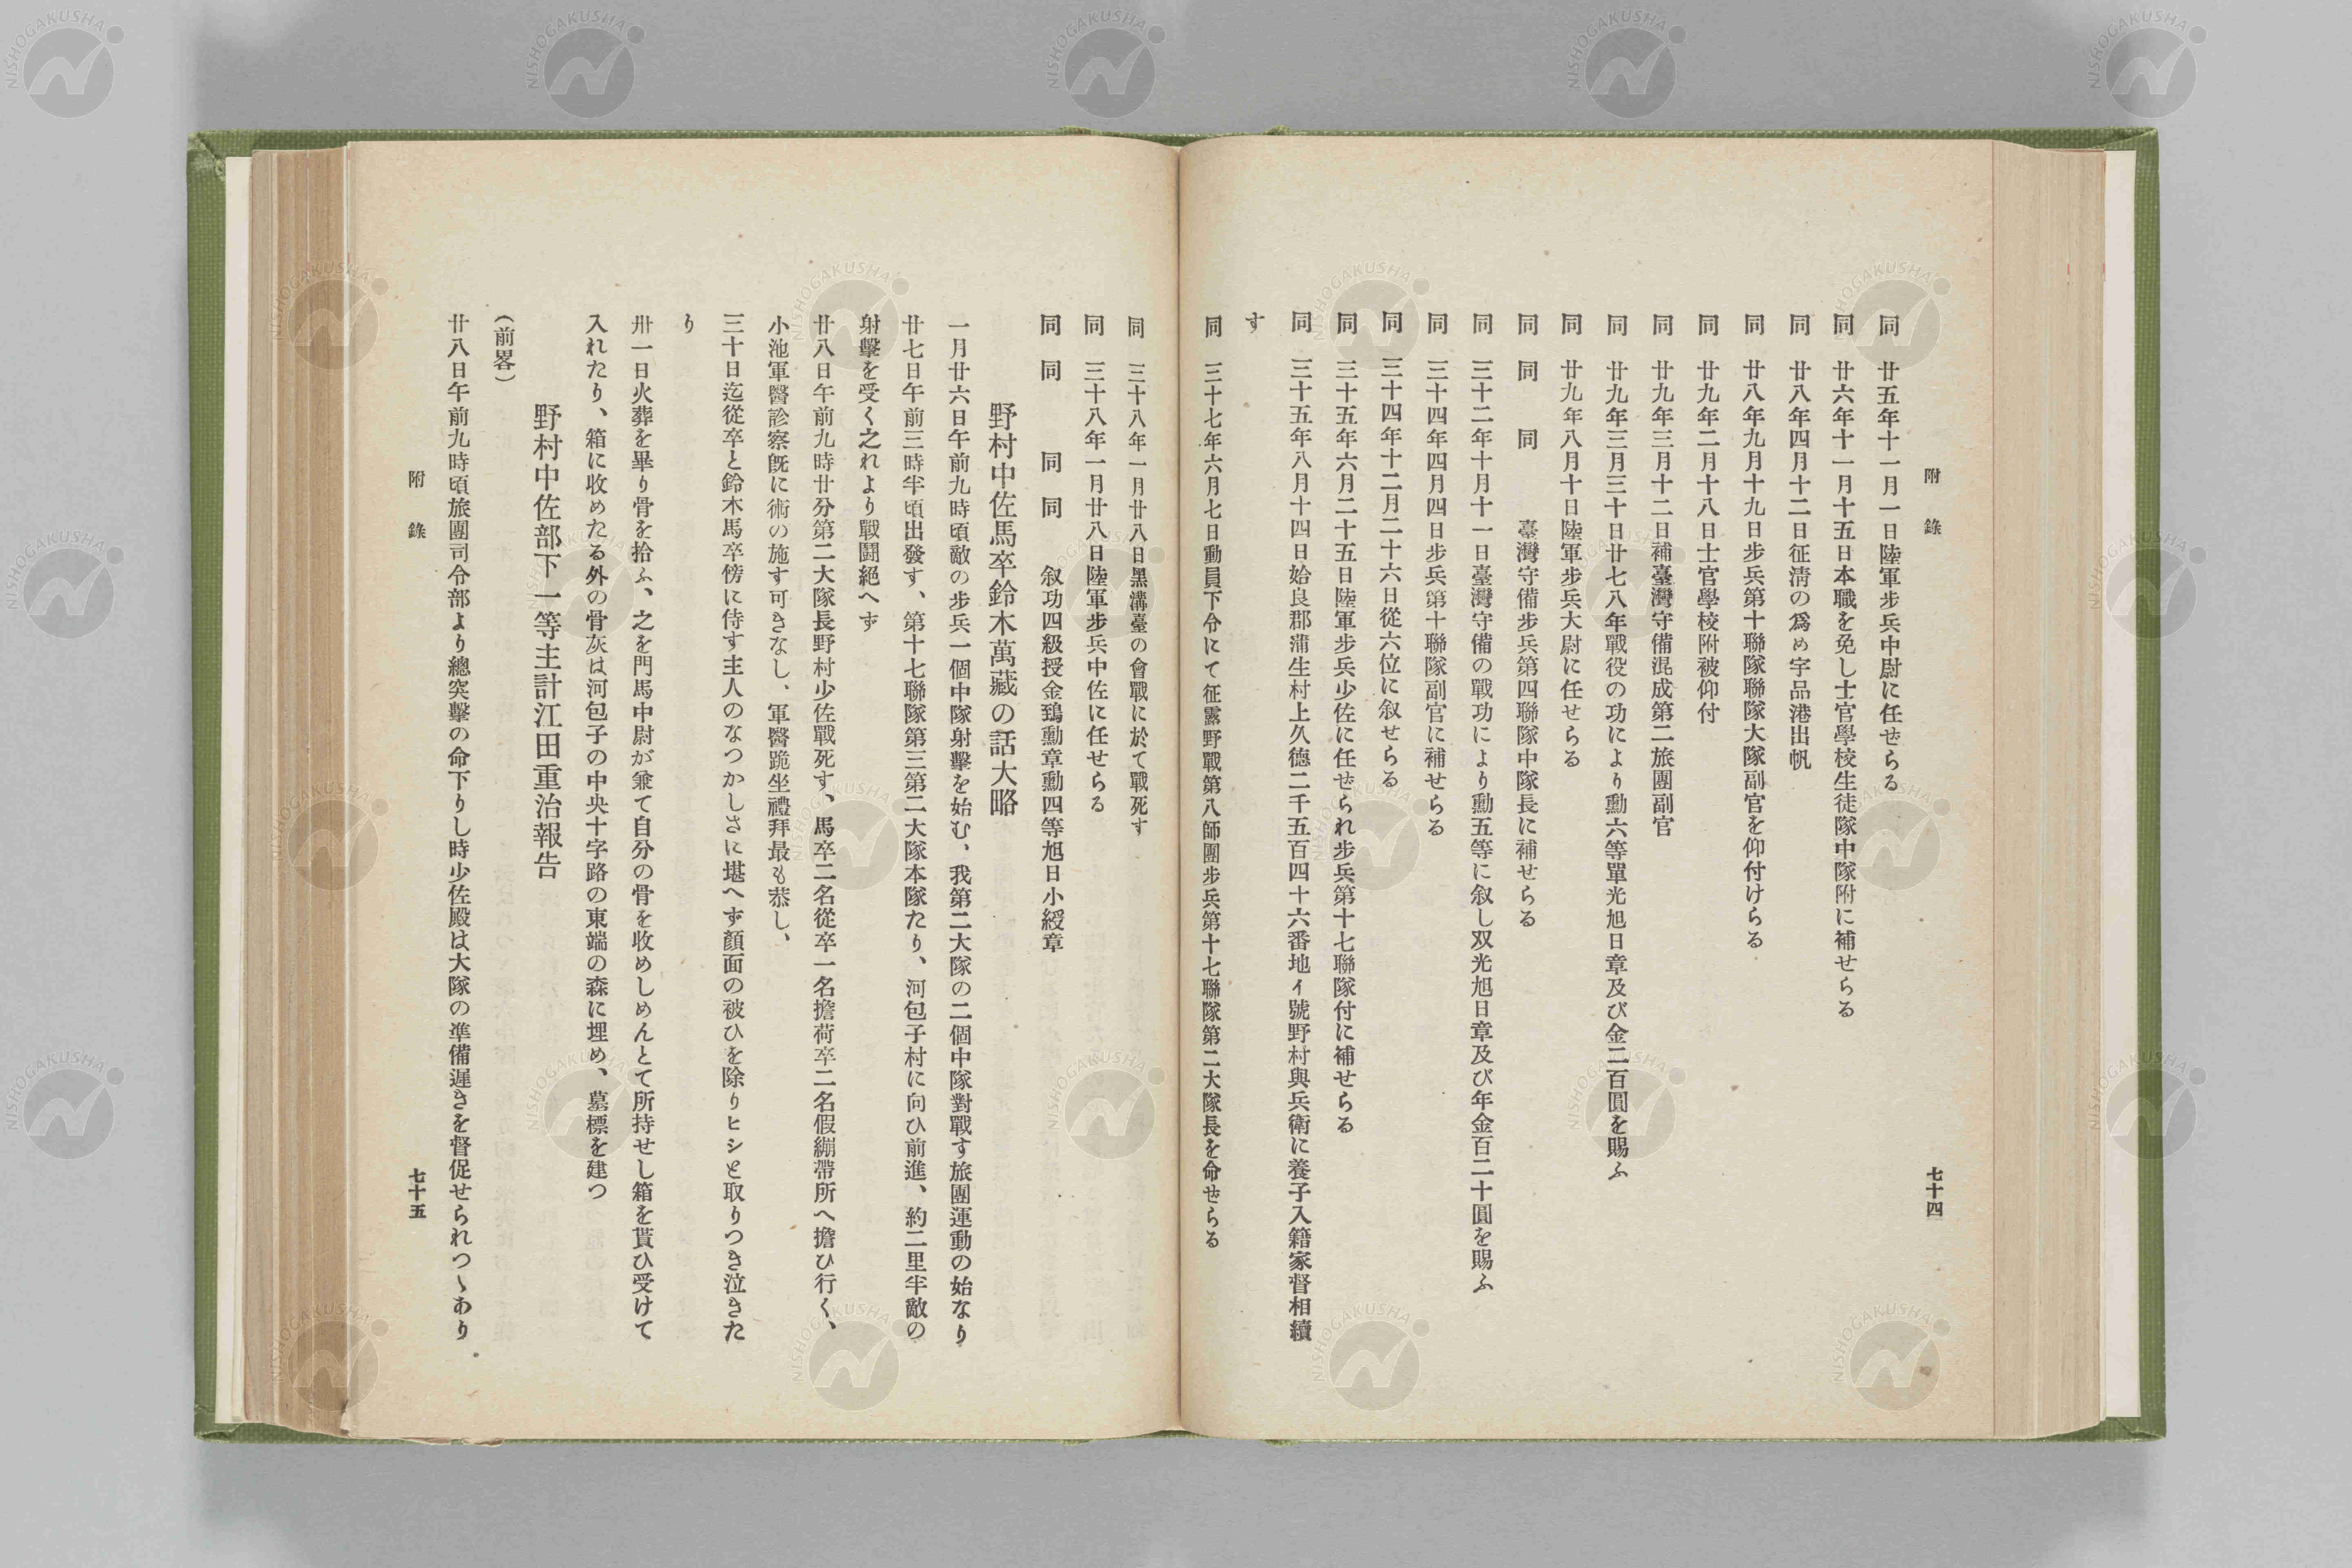 附錄
七十四
同 廿五年十一月一日陸軍步兵中尉に任せらる
同 廿六年十一月十五日本職を免し士官學校生徒隊中隊附に補せらる
同 廿八年四月十二日征淸の爲め宇品港出帆
同 廿八年九月十九日步兵第十聯隊聯隊大隊副官を仰付けらる
同 廿九年二月十八日士官學校附被仰付
同 廿九年三月十二日補臺灣守備混成第二旅團副官
同 廿九年三月三十日廿七八年戰役の功により勳六等單光旭日章及び金二百圓を賜ふ
同 廿九年八月十日陸軍步兵大尉に任せらる
同 同 同 臺灣守備步兵第四聯隊中隊長に補せらる
同 三十二年十月十一日臺灣守備の戰功により勳五等に叙し双光旭日章及び年金百二十圓を賜ふ
同 三十四年四月四日步兵第十聯隊副官に補せらる
同 三十四年十二月二十六日從六位に叙せらる
同 三十五年六月二十五日陸軍步兵少佐に任せられ步兵第十七聯隊付に補せらる
同 三十五年八月十四日姶良郡蒲生村上久德二千五百四十六番地イ號野村與兵衞に養子入籍家督相續
す
同 三十七年六月七日動員下令にて征露野戰第八師團步兵第十七聯隊第二大隊長を命せらる
同 三十八年一月廿八日黑溝臺の會戰に於て戰死す
同 三十八年一月廿八日陸軍步兵中佐に任せらる
同 同 同 同 叙功四級授金鵄勳章勳四等旭日小綬章
野村中佐馬卒鈴木萬藏の話大略
一月廿六日午前九時頃敵の步兵一個中隊射擊を始む、我第二大隊の二個中隊對戰す旅團運動の始なり
廿七日午前三時半頃出發す、第十七聯隊第三第二大隊本隊たり、河包子村に向ひ前進、約二里半敵の
射擊を受く之れより戰鬪絕へず
廿八日午前九時廿分第二大隊長野村少佐戰死す、馬卒二名從卒一名擔荷卒二名假繃帶所へ擔ひ行く、
小池軍醫診察旣に術の施す可きなし、軍醫跪坐禮拜最も恭し、
三十日迄從卒と鈴木馬卒傍に侍す主人のなつかしさに堪へず顏面の被ひを除りヒシと取りつき泣きた
り
卅一日火葬を畢り骨を拾ふ、之を門馬中尉が兼て自分の骨を收めしめんとて所持せし箱を貰ひ受けて
入れたり、箱に收めたる外の骨灰は河包子の中央十字路の東端の森に埋め、墓標を建つ
野村中佐部下一等主計江田重治報告
(前畧)
廿八日午前九時頃旅團司令部より總突擊の命下りし時少佐殿は大隊の準備遲きを督促せられつゝあり
附錄
七十五